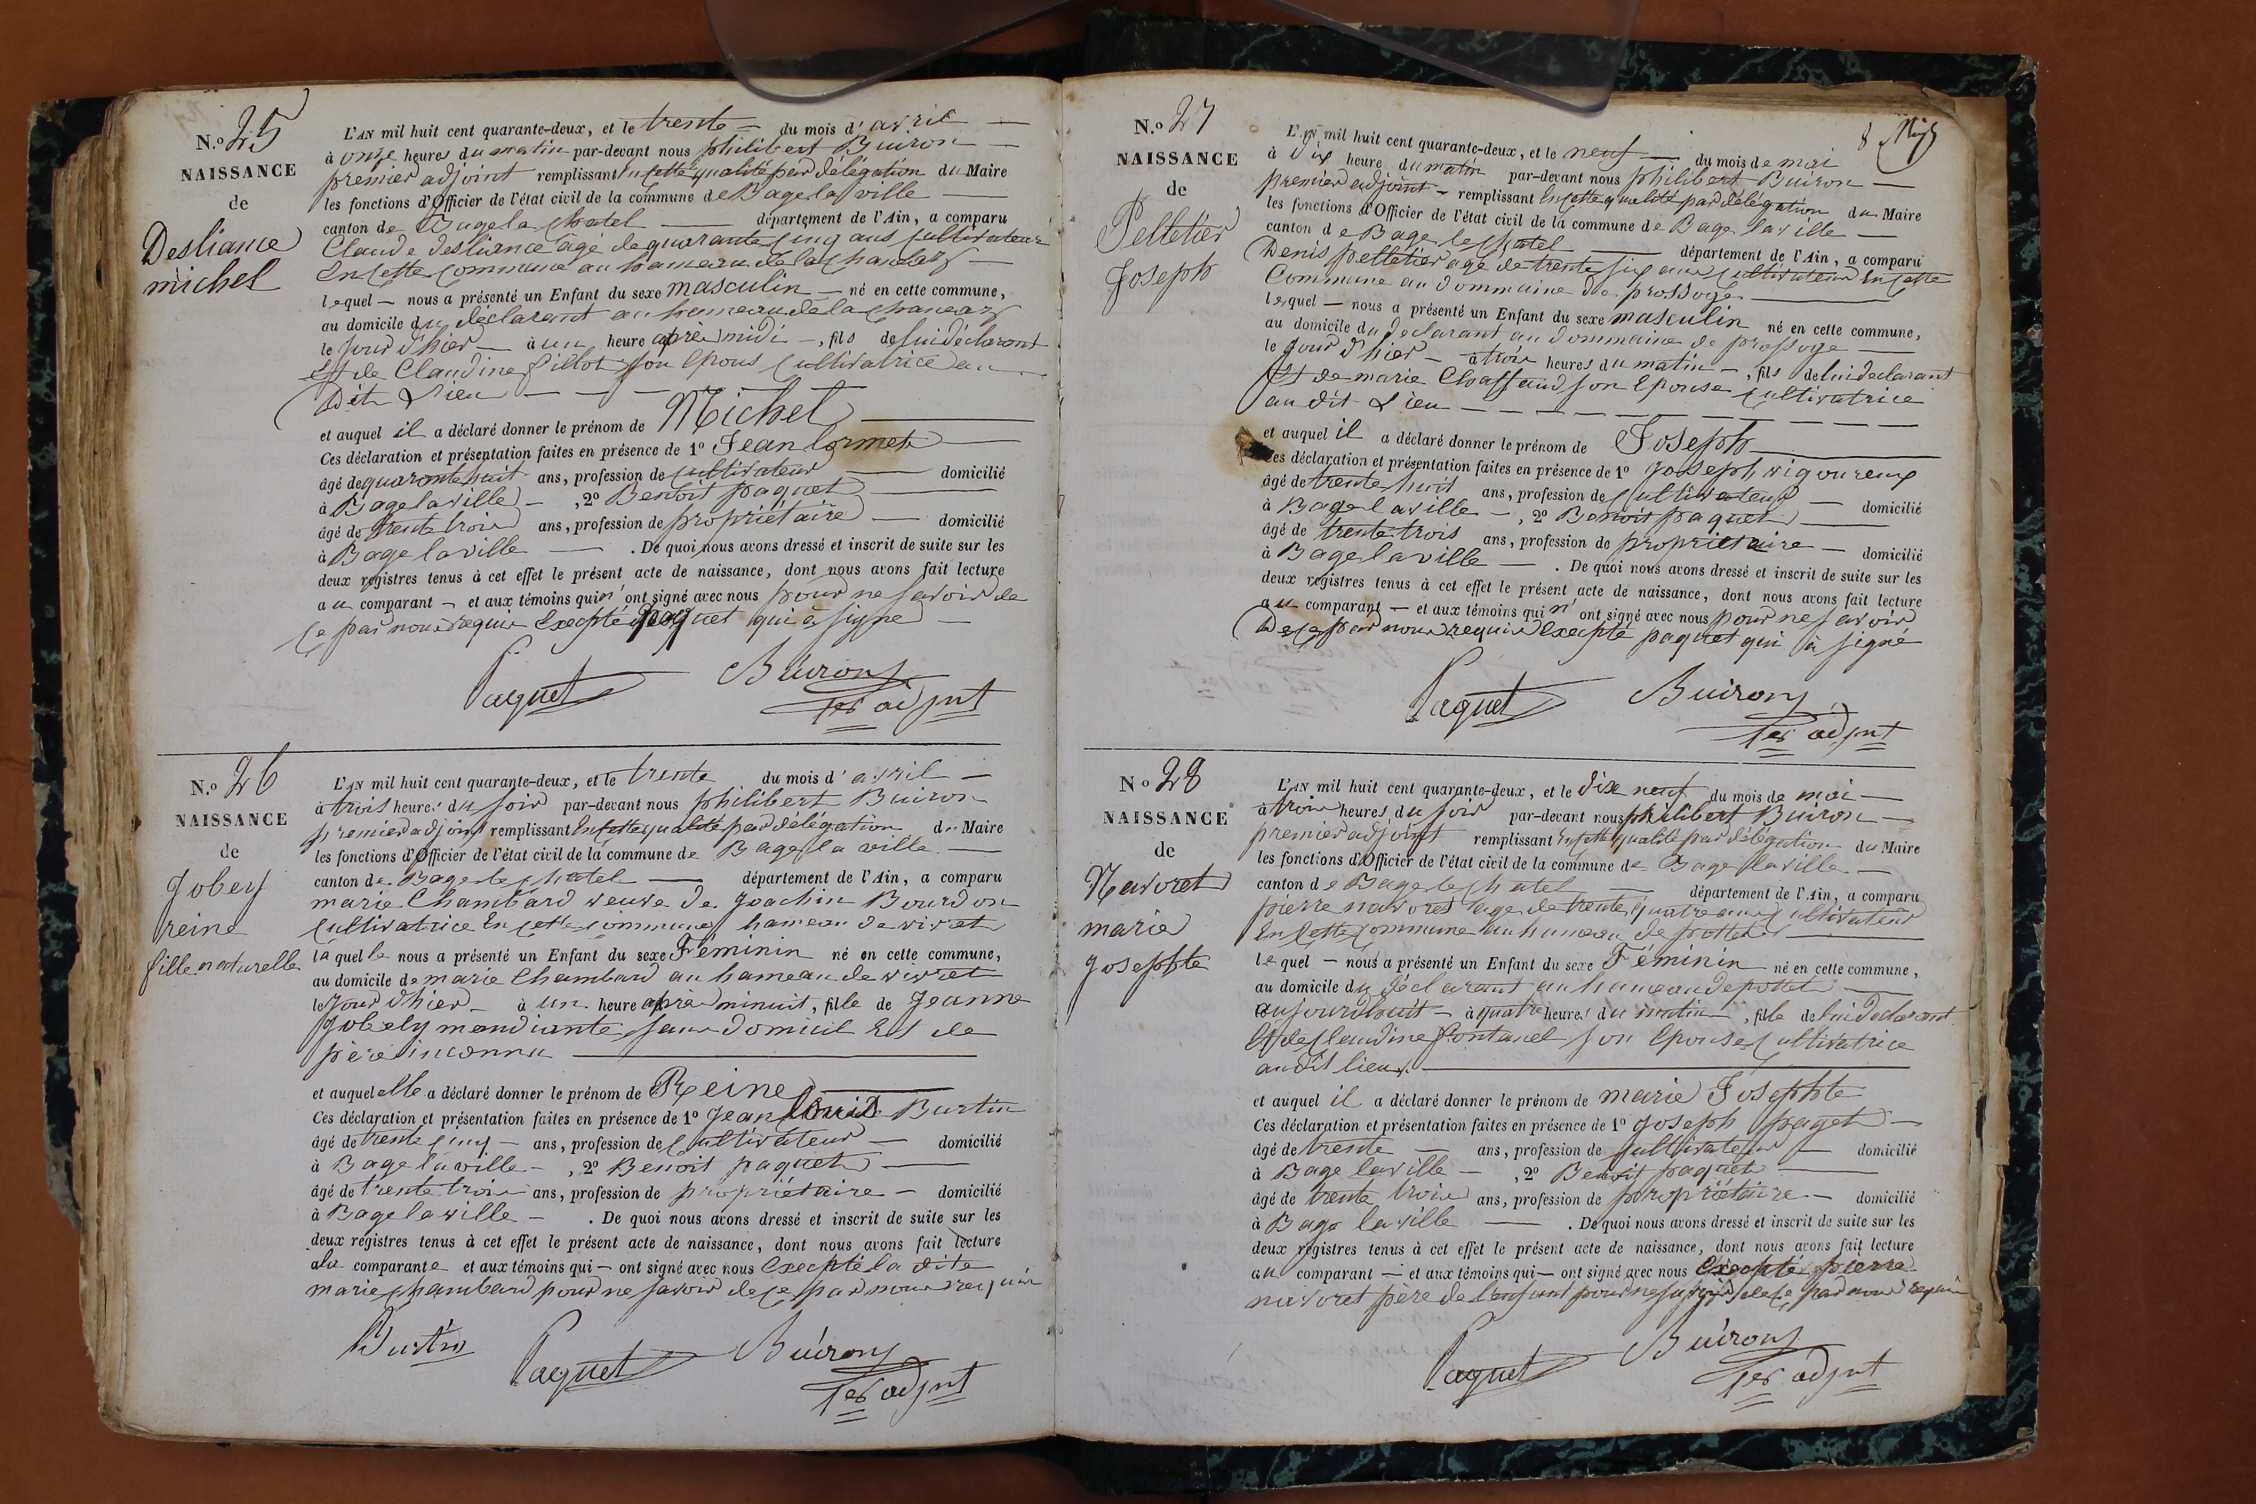 N.o 25
NAISSANCE
de
Desliance
michel
L'AN mil huit cent quarante-deux, et le trente du mois d'avril
à onze heures du matin par-devant nous philibert Buiron
premier adjoint remplissant en cette qualité par délégation du Maire
les fonctions d'Officier de l'état civil de la commune de Bage la ville
canton de Bage le chatel département de l'Ain, a comparu
Claude desliance age de quarante cinq ans cultivateur
En cette commune au hameau de la
lequel nous a présenté un Enfant du sexe masculin né en cette commune,
au domicile du déclarant au hameau de la
le jour d'hier à un heure après midi, fils de lui déclarant
Et de Claudine son Epous cultivatrice au
Dit Lieu
et auquel il a déclaré donner le prénom de Michel
Ces déclaration et présentation faites en présence de 1o Jean Cormet
âgé de quarante huit ans, profession de cultivateur domicilié
à Bage la ville, 2o Benoit paquet
âgé de trente trois ans, profession de propriétaire domicilié
à Bage la ville. De quoi nous avons dressé et inscrit de suite sur les
deux registres tenus à cet effet le présent acte de naissance, dont nous avons fait lecture
au comparant et aux témoins qui n'ont signé avec nous pour ne savoir de
ce par nous requis Excepté paquet qui à signé
Paquet Buiron
1er adjnt
N.o 26
NAISSANCE
de
Jobey
reine
fille naturelle
L'AN mil huit cent quarante-deux, et le trente du mois d'avril
à trois heures du soir par-devant nous philibert Buiron
premier adjoint remplissant En cette qualité par délégation du Maire
les fonctions d'Officier de l'état civil de la commune de Bage la ville
canton de Bage le chatel département de l'Ain, a comparu
marie Chambard veuve de Joachin Bourdon
cultivatrice En cette commune hameau de vivret
laquelle nous a présenté un Enfant du sexe Féminin né en cette commune,
au domicile de marie Chambard au hameau de vivret
le jour d'hier à un heure après minuit, fille de Jeanne
Jobely mendiante sans domicil Et de
père inconnu
et auquel elle a déclaré donner le prénom de Reine
Ces déclaration et présentation faites en présence de 1o Jean Burtin
âgé de trente cinq ans, profession de cultivateur domicilié
à Bage la ville, 2o Benoit paquet
âgé de trente trois ans, profession de propriétaire domicilié
à Bage la ville. De quoi nous avons dressé et inscrit de suite sur les
deux registres tenus à cet effet le présent acte de naissance, dont nous avons fait lecture
a la comparante et aux témoins qui ont signé avec nous Excepté la dite
marie chambard pour ne savoir de ce par nous requis
Burtin Paquet Buiron
1er adjnt
8
N.o 27
NAISSANCE
de
Pelletier
Joseph
L'AN mil huit cent quarante-deux, et le neuf du mois de mai
à dix heure du matin par-devant nous philibert Buiron
premier adjoint remplissant En cette qualité par délégation du Maire
les fonctions d'Officier de l'état civil de la commune de Bage la ville
canton de Bage le chatel département de l'Ain, a comparu
Denis pelletier agé de trente six ans cultivateur En cette
Commune au dommaine de
lequel nous a présenté un Enfant du sexe masculin né en cette commune,
au domicile du declarant au dommaine de
le jour d'hier à trois heures du matin, fils de lui declarant
Et de marie Chaffaud son Epouse cultivatrice
au dit Lieu
et auquel il a déclaré donner le prénom de Joseph
Ces déclaration et présentation faites en présence de 1o Joseph vigoureux
âgé de trente huit ans, profession de cultivateur domicilié
à Bage la ville, 2o Benoit paquet
âgé de trente trois ans, profession de propriétaire domicilié
à Bage la ville. De quoi nous avons dressé et inscrit de suite sur les
deux registres tenus à cet effet le présent acte de naissance, dont nous avons fait lecture
au comparant et aux témoins qui n'ont signé avec nous pour ne savoir
De ce par nous requis Excepté paquet qui à signé
Paquet Buiron
1er adjnt
No 28
NAISSANCE
de
Navoret
marie
josephte
L'AN mil huit cent quarante-deux, et le dix neuf du mois de mai
à trois heures du soir par-devant nous philibert Buiron
premier adjoint remplissant En cette qualité par délégation du Maire
les fonctions d'Officier de l'état civil de la commune de Bage la ville
canton de Bage le chatel département de l'Ain, a comparu
pierre navoret age de trente quatre ans cultivateur
En cette commune au hameau de pottet
lequel nous a présenté un Enfant du sexe Féminin né en cette commune,
au domicile du déclarant au hameau de pottet
aujourdhuit à quatre heures du matin, fille de lui declarant
Et de Claudine Fontanel son Epouse cultivatrice
au dit lieux
et auquel il a déclaré donner le prénom de marie Josephte
Ces déclaration et présentation faites en présence de 1o joseph paget
âgé de trente ans, profession de cultivateur domicilié
à Bage la ville, 2o Benoit paquet
âgé de trente trois ans, profession de propriétaire domicilié
à Bage la ville. De quoi nous avons dressé et inscrit de suite sur les
deux registres tenus à cet effet le présent acte de naissance, dont nous avons fait lecture
au comparant et aux témoins qui ont signé avec nous Excepté pierre
navoret père de l'enfant pour ne savoir de ce par nous requis
Paquet Buiron
1er adjnt